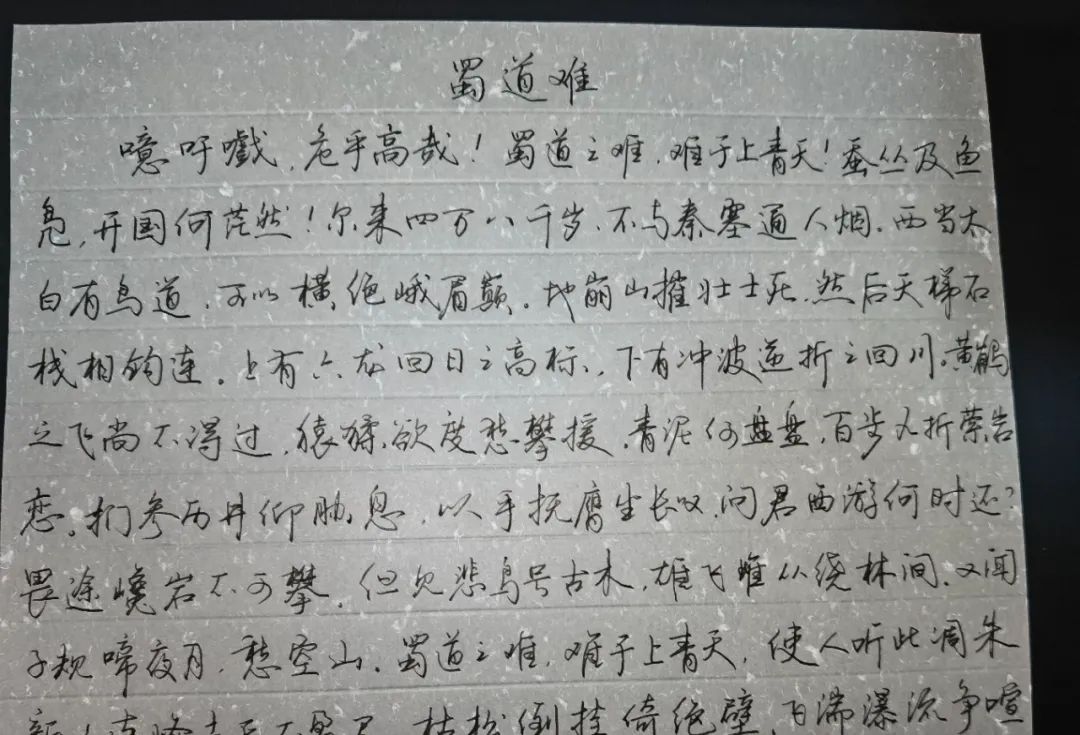 蜀道难
噫吁戏,危乎高哉!蜀道之难,难于上青天!蚕丛及鱼
凫,开国何茫然!尔来四万八千岁,不与秦塞通人烟.西当太
白有鸟道,可以横绝峨眉巅.地崩山摧壮士死,然后天梯石
栈相钩连.上有六龙回日之高标,下有冲波逆折之回川.黄鹤
之飞尚不得过,猿猱欲度愁攀援.青泥何盘盘,百步九折萦岩
峦.扪参历井仰胁息,以手抚膺坐长叹.问君西游何时还?
畏途巉岩不可攀.但见悲鸟号古木,雄飞雌从绕林间.又闻
子规啼夜月,愁空山.蜀道之难,难于上青天,使人听此凋朱
枯松倒挂倚绝壁.飞湍瀑流争喧